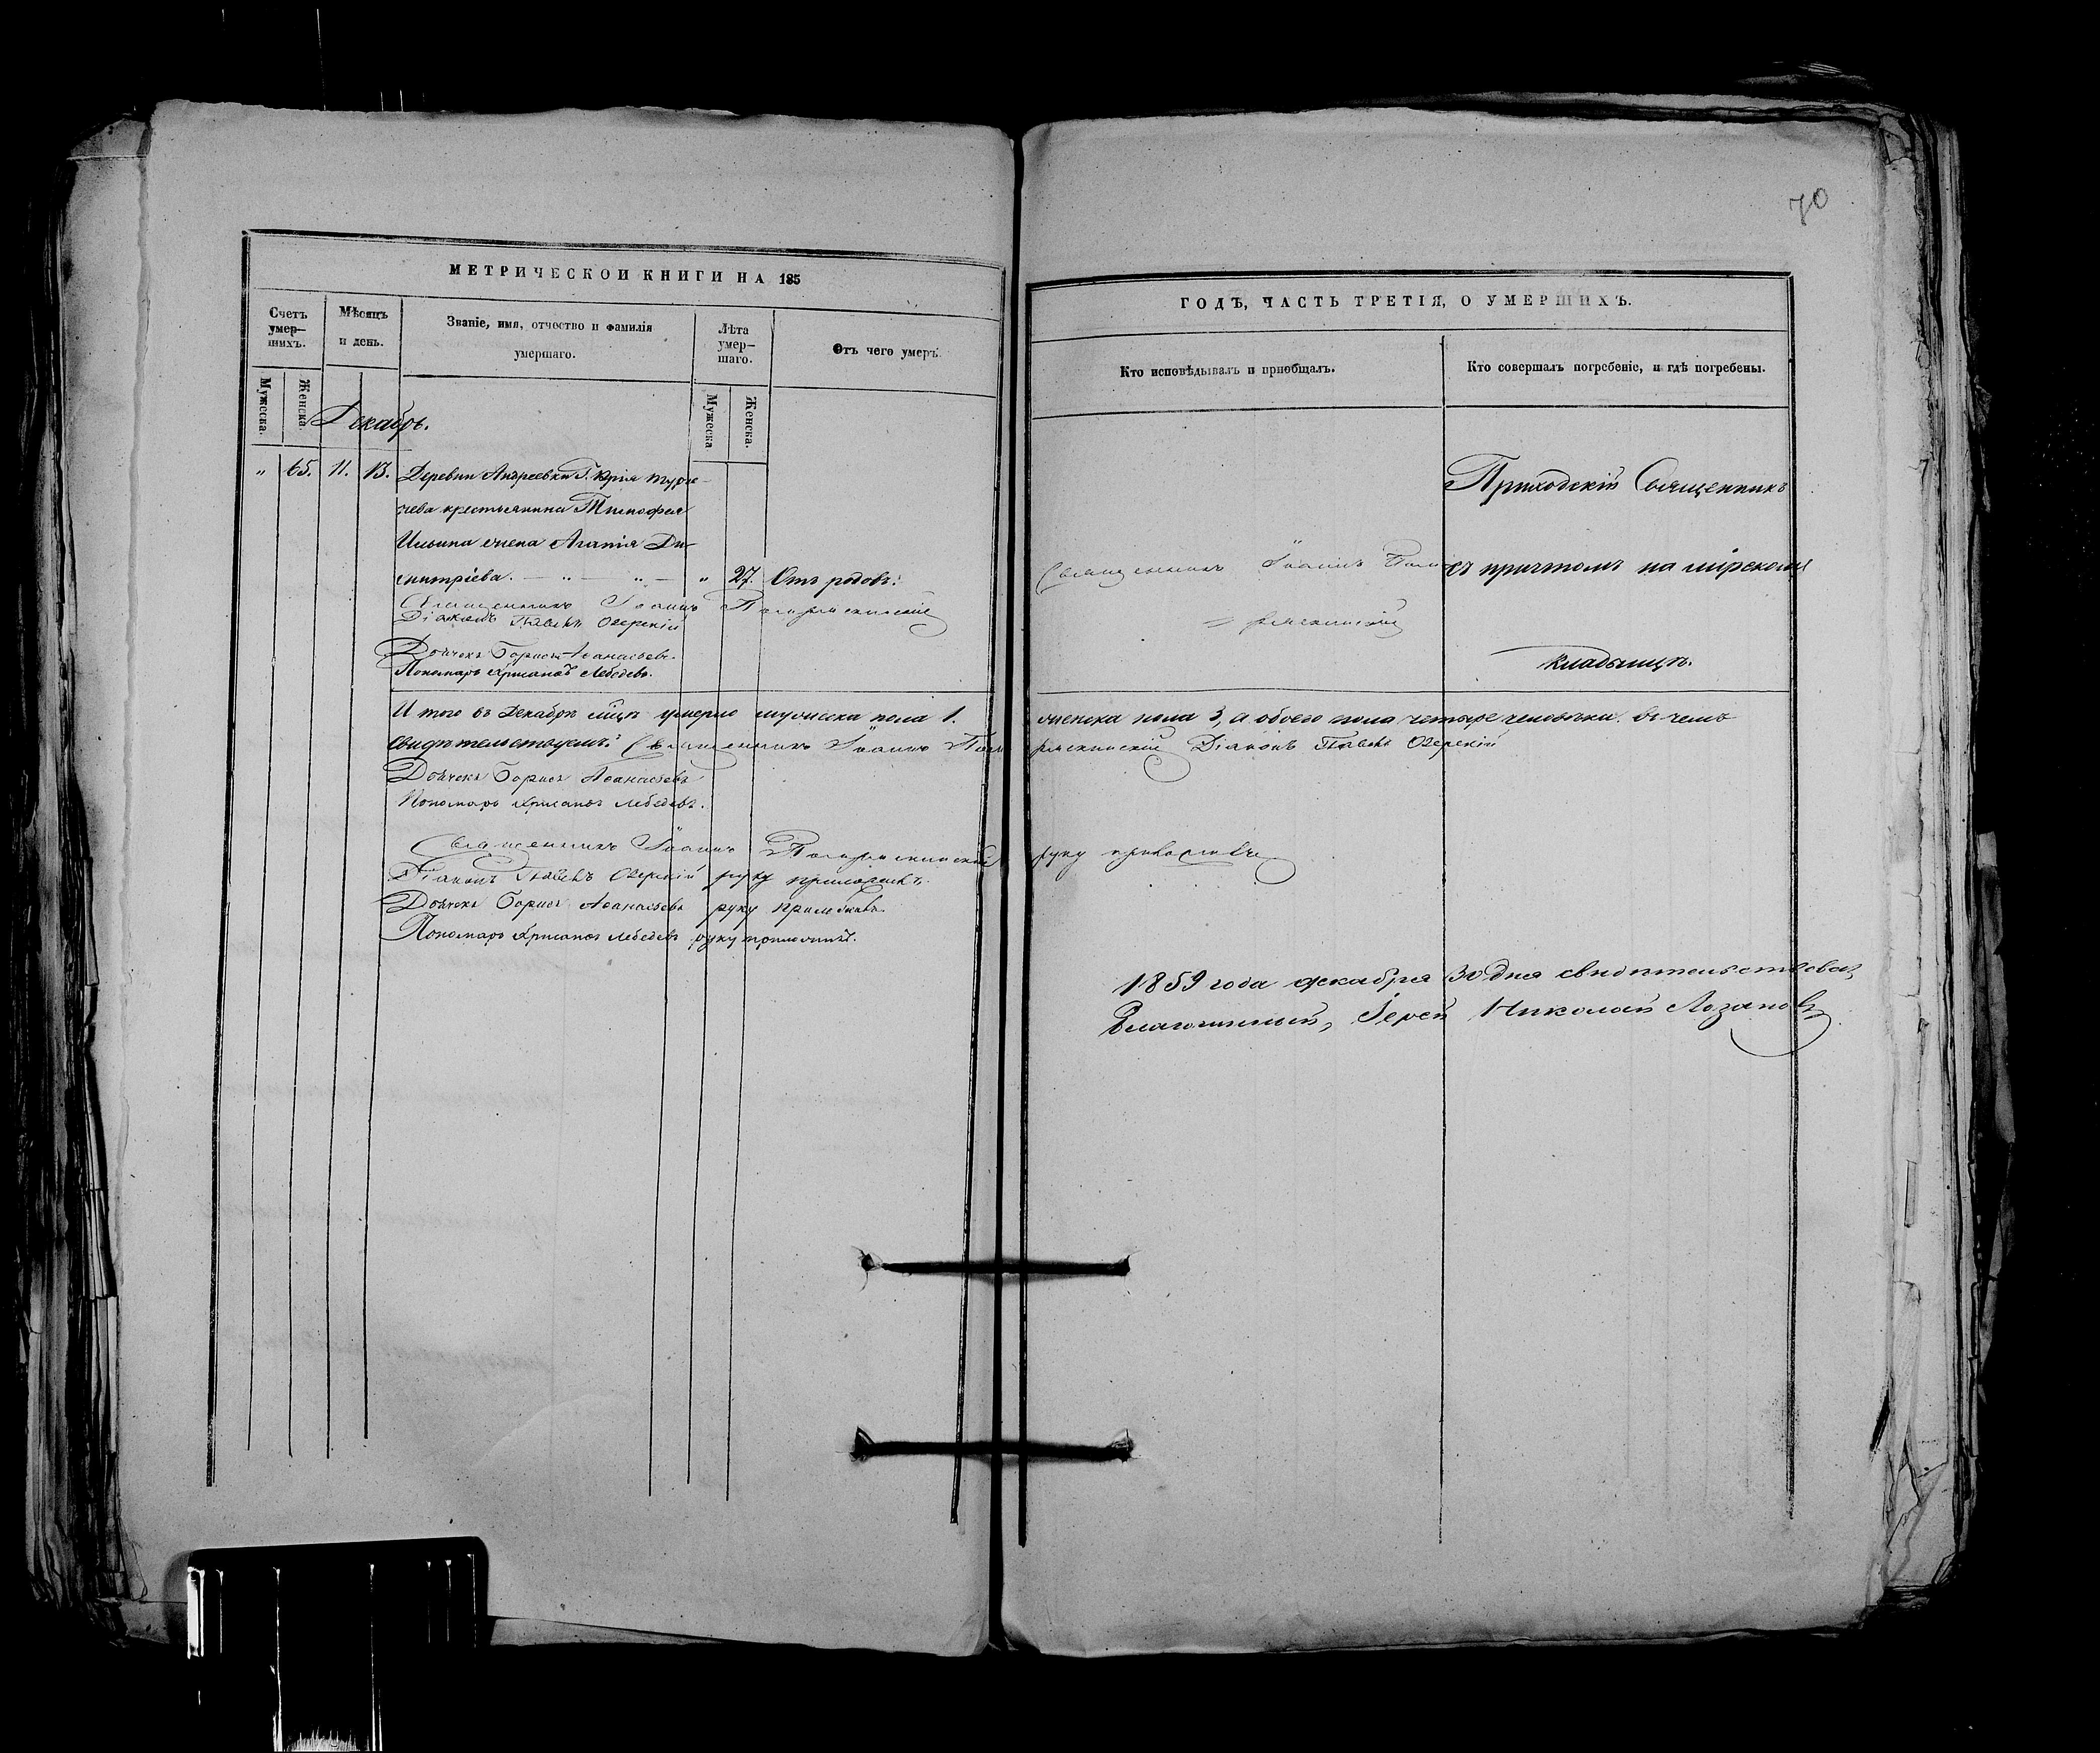 70
МЕТРИЧЕСКОЙ КНИГИ НА 185
Счетъ умер–шихъ.
Мѣсяцъ и день.
Званіе, имя, отчество и фамилія умершаго.
Лѣта умер–шаго.
Отъ чего умеръ.
Мужеска.
Женска.
Мужеска
Женска.
Декабрь.
" 65. 11. 13. Деревни Андреевки Г. Юрія Турче-
нева крестьянина Тимофея
Ильина жена Агапія Ди-
митріева. — " — " — " 27. Отъ родовъ.
Священникъ Іоаннъ
Діаконъ Павелъ Озерскій
Дьячекъ Борисъ Аѳанасьевъ
Пономарь Лебедевъ.
И того въ Декабрѣ мѣцѣ умерло мужеска пола 1.
свидѣтельствуемъ: Священникъ Іоаннъ
Дьячекъ Борисъ Аѳанасьевъ
Пономарь Лебедевъ.
Священникъ Іоаннъ
Діаконъ Павелъ Озерскій руку приложилъ.
Дьячекъ Борисъ Аѳанасьевъ руку приложилъ.
Пономарь Лебедевъ руку приложилъ.
ГОДЪ, ЧАСТЬ ТРЕТІЯ, О УМЕРШИХЪ.
Кто исповѣдывалъ и пріобщалъ.
Кто совершалъ погребеніе, и гдѣ погребены.
Священникъ Іоаннъ
Приходскій Священникъ
съ причтомъ на мірскомъ
кладбищѣ.
женска пола 3, а обоего пола четыре человѣка. въ чемъ
Діаконъ Павелъ Озерскій
руку приложилъ
1859 года декабря 30 дня свидѣтельствовалъ
Благочинный, Іерей Николай Лозановъ